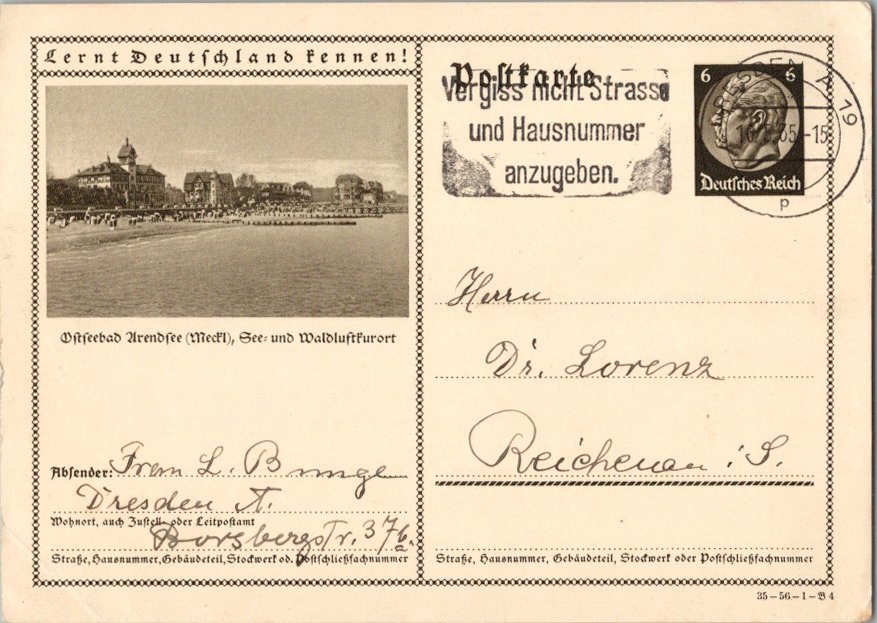 Lernt Deutschland kennen!
Ostseebad Arendsee (Meckl), See- und Waldluftkurort
Absender: Frau L. Bunge
Dresden A.
Wohnort, auch Zustell- oder Leitpostamt
Borsbergstr. 37
Straße, Hausnummer, Gebäudeteil, Stockwerk od. Postschließfachnummer
Postkarte
Vergiss nicht Strasse
und Hausnummer
anzugeben.
6 6
Deutsches Reich
DRESDEN A 19
35.-15
p
Herrn
Dr. Lorenz
Reichenau i. S.
Straße, Hausnummer, Gebäudeteil, Stockwerk oder Postschließfachnummer
35-56-1-B 4